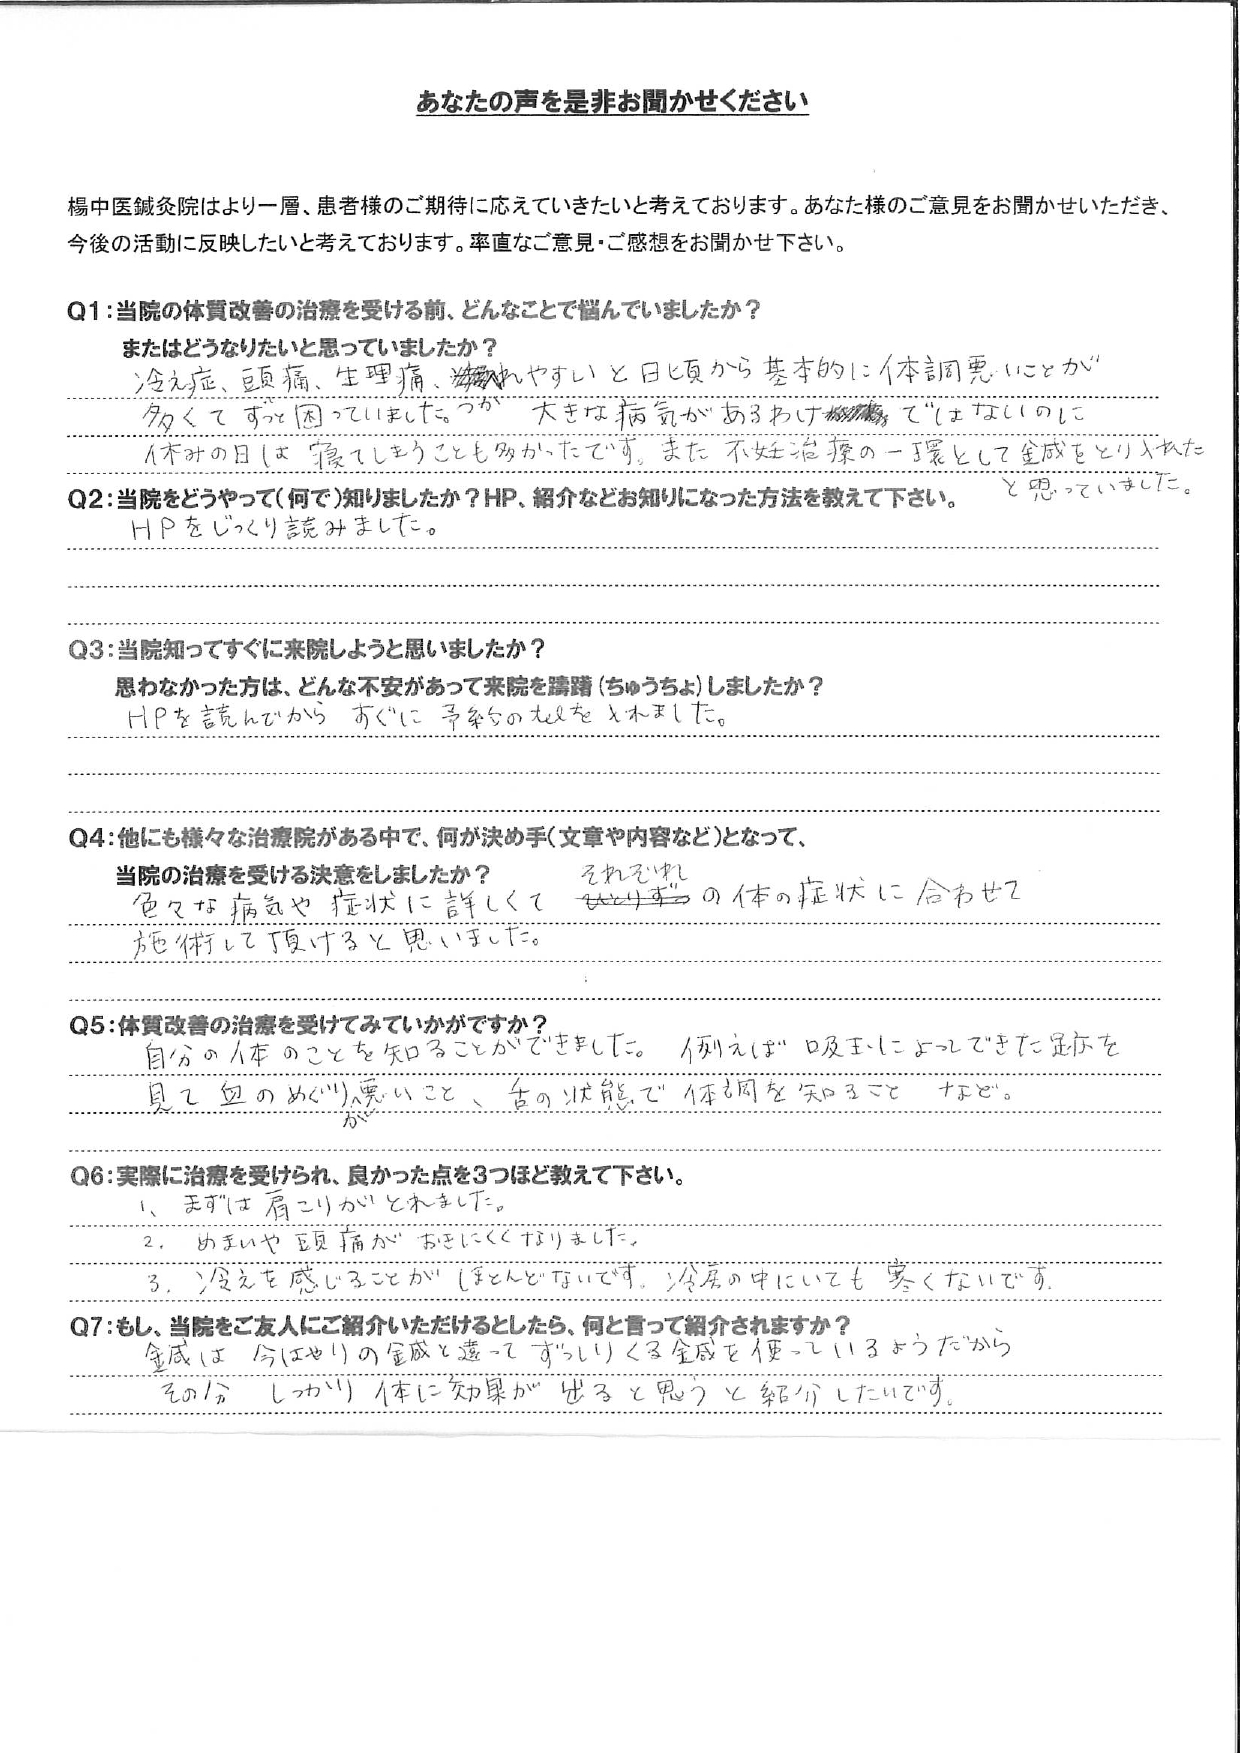 あなたの声を是非お聞かせください
楊中医鍼灸院はより一層、患者様のご期待に応えていきたいと考えております。あなた様のご意見をお聞かせいただき、
今後の活動に反映したいと考えております。率直なご意見・ご感想をお聞かせ下さい。
Q1:当院の体質改善の治療を受ける前、どんなことで悩んでいましたか？
またはどうなりたいと思っていましたか？
冷え症、頭痛、生理痛、つかれやすいと日頃から基本的に体調悪いことが
多くてずっと困っていました。大きな病気があるわけではないのに
休みの日は寝てしまうことも多かったです。また不妊治療の一環として鍼をとり入れた
と思っていました。
Q2:当院をどうやって(何で)知りましたか？HP、紹介などお知りになった方法を教えて下さい。
HPをじっくり読みました。
Q3:当院知ってすぐに来院しようと思いましたか？
思わなかった方は、どんな不安があって来院を躊躇(ちゅうちょ)しましたか？
HPを読んでからすぐに予約のtelを入れました。
Q4:他にも様々な治療院がある中で、何が決め手(文章や内容など)となって、
当院の治療を受ける決意をしましたか？
色々な病気や症状に詳しくて それぞれの体の症状に合わせて
施術して頂けると思いました。
Q5:体質改善の治療を受けてみていかがですか？
自分の体のことを知ることができました。例えば吸玉によってできた跡を
見て血のめぐりが悪いこと、舌の状態で体調を知ること など。
Q6:実際に治療を受けられ、良かった点を3つほど教えて下さい。
1、まずは肩こりがとれました。
2. めまいや頭痛がおきにくくなりました。
3. 冷えを感じることがほとんどないです。冷房の中にいても寒くないです.
Q7:もし、当院をご友人にご紹介いただけるとしたら、何と言って紹介されますか？
鍼は今はやりの鍼と違ってずっしりくる鍼を使っているようだから
その分 しっかり体に効果が出ると思うと紹介したいです。